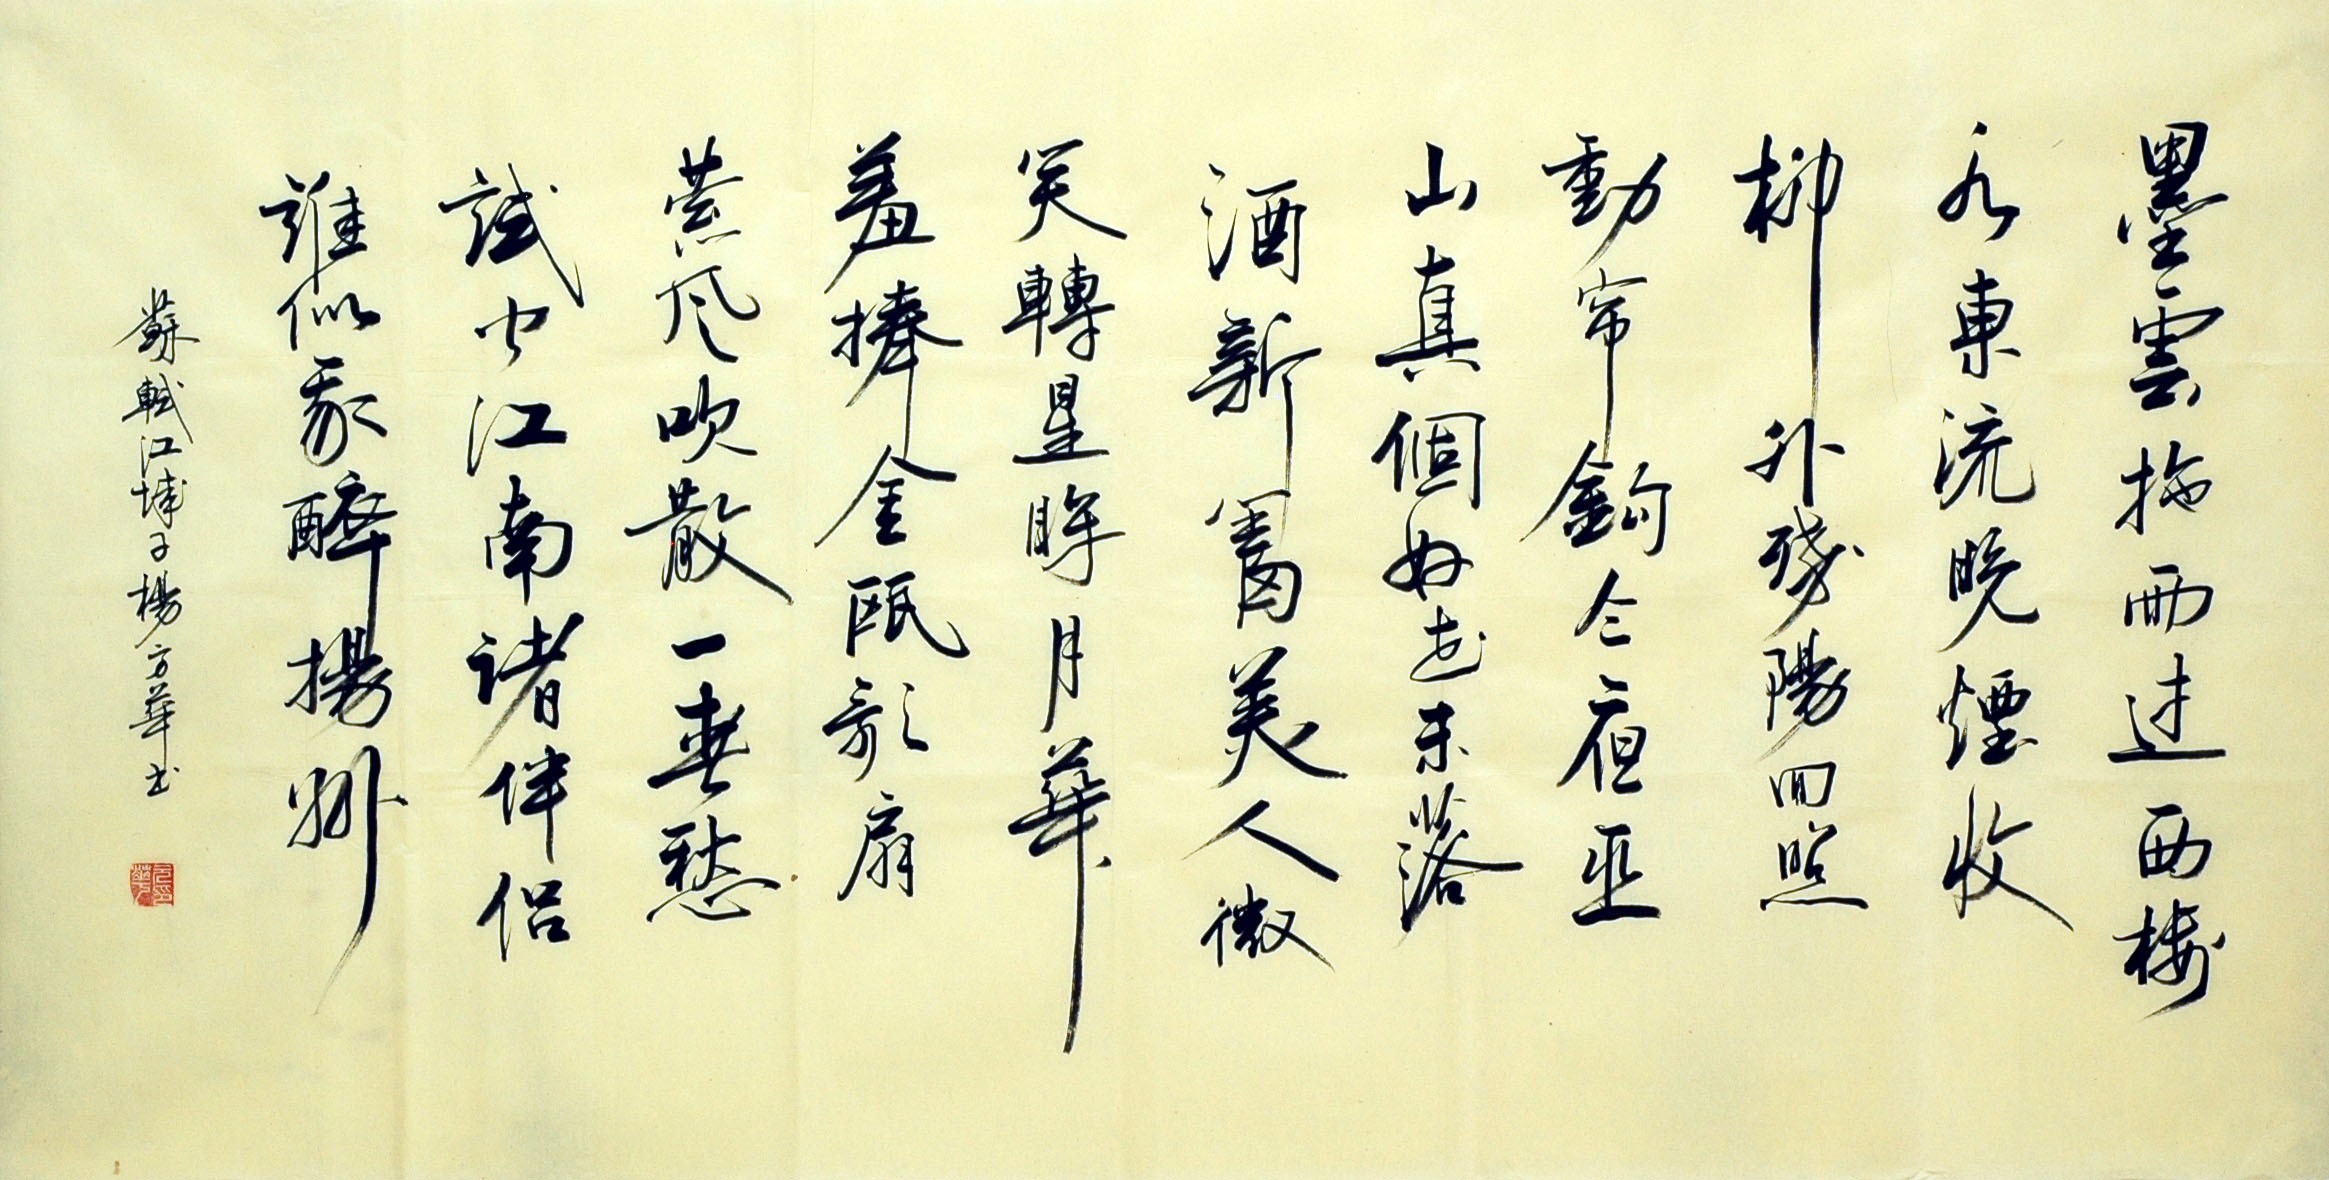 墨雲拖雨过西樓
水東流晚煙收
柳外殘陽回照
動帘鉤今夜巫
山真個好花未落
酒新篘美人微
笑轉星眸月華
羞捧金甌歌扇
萦风吹散一春愁
試问江南諸伴侣
誰似我醉揚州
蘇軾江城子楊方華书